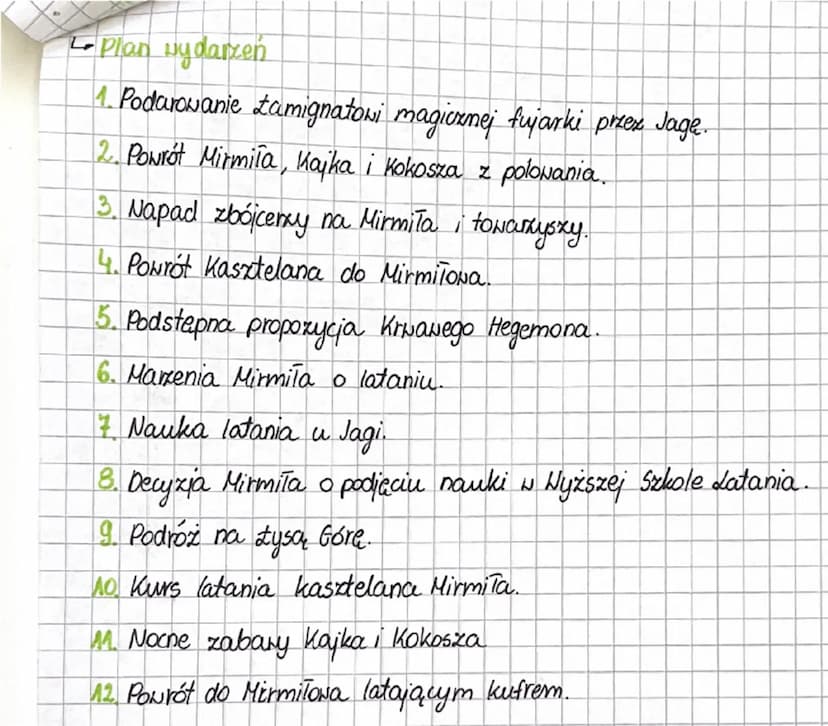 ↳ Plan wydarzeń
1. Podarowanie Łamignatowi magicznej fujarki przez Jagę.
2. Powrót Mirmiła, Kajka i Kokosza z polowania.
3. Napad zbójcerzy na Mirmiła i towarzyszy.
4. Powrót Kasztelana do Mirmiłowa.
5. Podstępna propozycja Krwawego Hegemona.
6. Marzenia Mirmiła o lataniu.
7. Nauka latania u Jagi.
8. Decyzja Mirmiła o podjęciu nauki w Wyższej Szkole Latania.
9. Podróż na Łysą Górę.
10. Kurs latania kasztelana Mirmiła.
11. Nocne zabawy Kajka i Kokosza
12. Powrót do Mirmiłowa latającym kufrem.